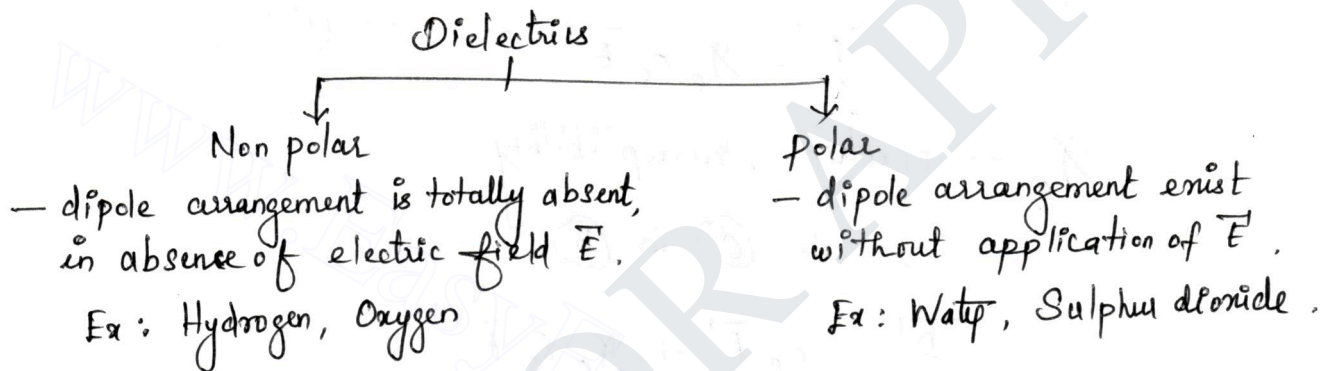 Dielectrics
Non polar
— dipole arrangement is totally absent,
in absence of electric field E⃗.
Ex: Hydrogen, Oxygen
Polar
— dipole arrangement exist
without application of E⃗.
Ex: Water, Sulphur dioxide.
www.Easy
OR AP